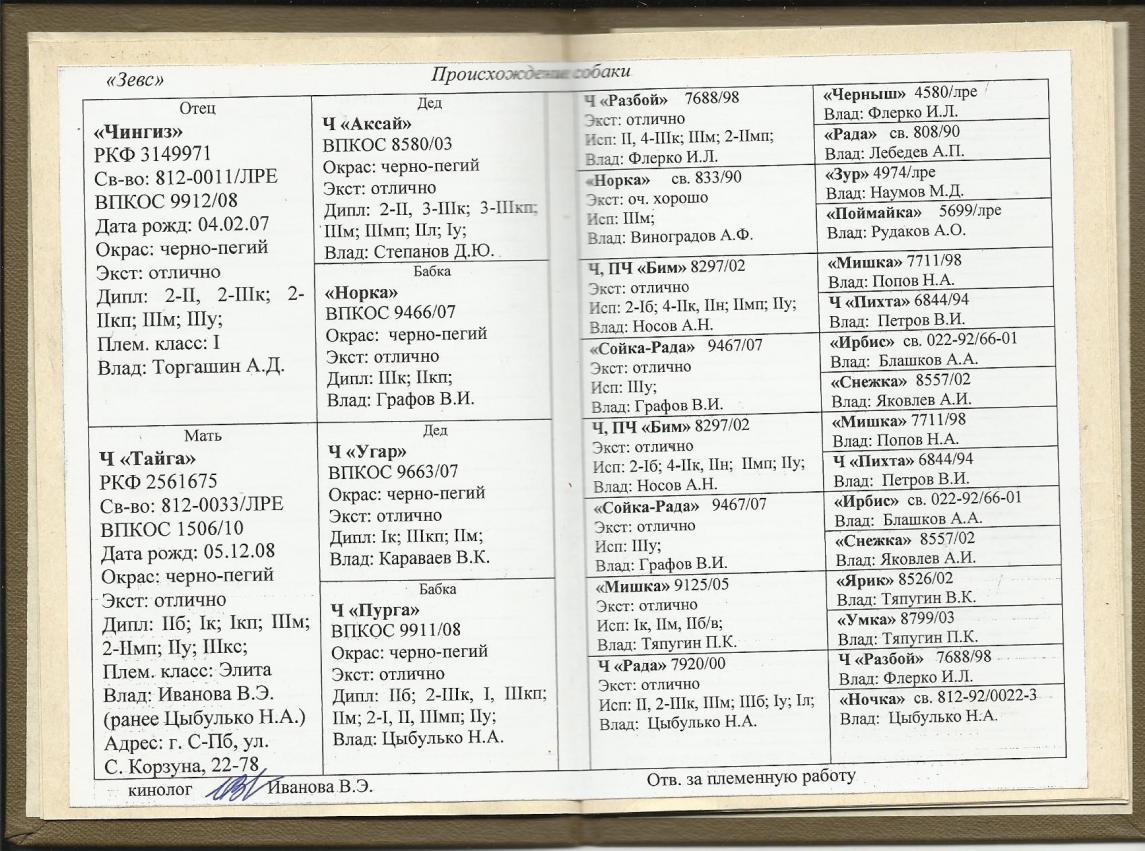 «Зевс»
Происхождение собаки
Отец
«Чингиз»
РКФ 3149971
Св-во: 812-0011/ЛРЕ
ВПКОС 9912/08
Дата рожд: 04.02.07
Окрас: черно-пегий
Экст: отлично
Дипл: 2-II, 2-IIIк; 2-
IIкп; IIIм; IIIу;
Плем. класс: I
Влад: Торгашин А.Д.
Мать
Ч «Тайга»
РКФ 2561675
Св-во: 812-0033/ЛРЕ
ВПКОС 1506/10
Дата рожд: 05.12.08
Окрас: черно-пегий
Экст: отлично
Дипл: IIб; Iк; Iкп; IIIм;
2-IIмп; IIу; IIIкс;
Плем. класс: Элита
Влад: Иванова В.Э.
(ранее Цыбулько Н.А.)
Адрес: г. С-Пб, ул.
С. Корзуна, 22-78
Дед
Ч «Аксай»
ВПКОС 8580/03
Окрас: черно-пегий
Экст: отлично
Дипл: 2-II, 3-IIIк; 3-IIIкп;
IIIм; IIIмп; IIл; Iу;
Влад: Степанов Д.Ю.
Бабка
«Норка»
ВПКОС 9466/07
Окрас: черно-пегий
Экст: отлично
Дипл: IIIк; IIкп;
Влад: Графов В.И.
Дед
Ч «Угар»
ВПКОС 9663/07
Окрас: черно-пегий
Экст: отлично
Дипл: Iк; IIIкп; IIм;
Влад: Караваев В.К.
Бабка
Ч «Пурга»
ВПКОС 9911/08
Окрас: черно-пегий
Экст: отлично
Дипл: IIб; 2-IIIк, I, IIIкп;
IIм; 2-I, II, IIIмп; IIу;
Влад: Цыбулько Н.А.
Ч «Разбой» 7688/98
Экст: отлично
Исп: II, 4-IIIк; IIIм; 2-IIмп;
Влад: Флерко И.Л.
«Норка» св. 833/90
Экст: оч. хорошо
Исп: IIIм;
Влад: Виноградов А.Ф.
Ч, ПЧ «Бим» 8297/02
Экст: отлично
Исп: 2-Iб; 4-IIк, IIн; IIмп; IIу;
Влад: Носов А.Н.
«Сойка-Рада» 9467/07
Экст: отлично
Исп: IIIу;
Влад: Графов В.И.
Ч, ПЧ «Бим» 8297/02
Экст: отлично
Исп: 2-Iб; 4-IIк, IIн; IIмп; IIу;
Влад: Носов А.Н.
«Сойка-Рада» 9467/07
Экст: отлично
Исп: IIIу;
Влад: Графов В.И.
«Мишка» 9125/05
Экст: отлично
Исп: Iк, IIм, IIб/в;
Влад: Тяпугин П.К.
Ч «Рада» 7920/00
Экст: отлично
Исп: II, 2-IIIк, IIIм; IIIб; Iу; Iл;
Влад: Цыбулько Н.А.
«Черныш» 4580/лре
Влад: Флерко И.Л.
«Рада» св. 808/90
Влад: Лебедев А.П.
«Зур» 4974/лре
Влад: Наумов М.Д.
«Поймайка» 5699/лре
Влад: Рудаков А.О.
«Мишка» 7711/98
Влад: Попов Н.А.
Ч «Пихта» 6844/94
Влад: Петров В.И.
«Ирбис» св. 022-92/66-01
Влад: Блашков А.А.
«Снежка» 8557/02
Влад: Яковлев А.И.
«Мишка» 7711/98
Влад: Попов Н.А.
Ч «Пихта» 6844/94
Влад: Петров В.И.
«Ирбис» св. 022-92/66-01
Влад: Блашков А.А.
«Снежка» 8557/02
Влад: Яковлев А.И.
«Ярик» 8526/02
Влад: Тяпугин В.К.
«Умка» 8799/03
Влад: Тяпугин П.К.
Ч «Разбой» 7688/98
Влад: Флерко И.Л.
«Ночка» св. 812-92/0022-3
Влад: Цыбулько Н.А.
кинолог Иванова В.Э.
Отв. за племенную работу